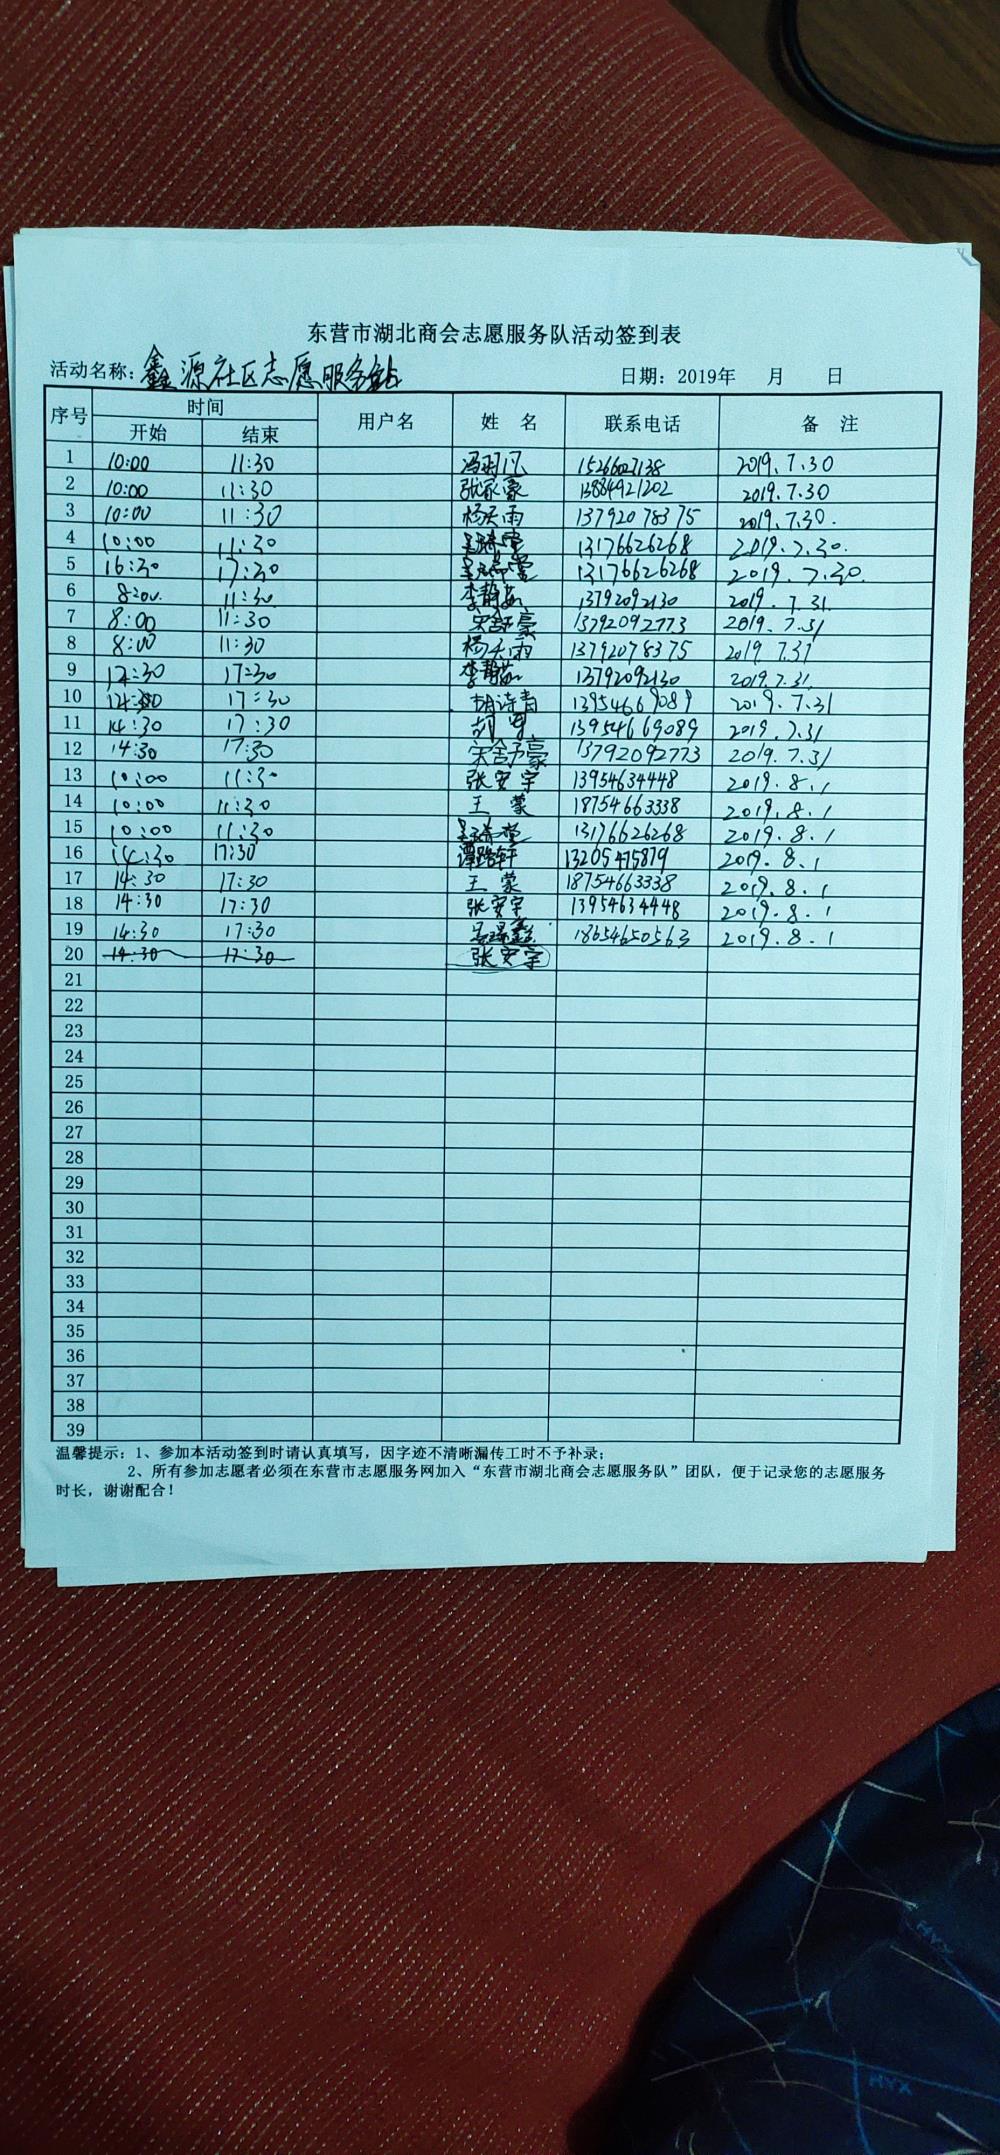 东营市湖北商会志愿服务队活动签到表
活动名称：鑫源社区志愿服务站 日期：2019年 月 日
序号 时间 用户名 姓 名 联系电话 备 注
开始 结束
1 10:00 11:30 冯羽凡 15266027138 2019.7.30
2 10:00 11:30 张家豪 13884921202 2019.7.30
3 10:00 11:30 杨天雨 13792078375 2019.7.30.
4 10:00 11:30 13176626268 2019.7.30.
5 16:30 17:30 13176626268 2019.7.30.
6 11:30 李静茹 13792092130 2019.7.31.
7 8:00 11:30 宋舒豪 13792092773 2019.7.31
8 8:00 11:30 杨天雨 13792078375 2019 7.31
9 17:30 李静茹 13792092130 2019.7.31.
10 17:30 胡诗青 13954669089 2019.7.31
11 14:30 17:30 13954669089 2019.7.31
12 14:30 17:30 宋舒豪 13792092773 2019.7.31
13 10:00 11:30 张安宇 13954634448 2019.8.1
14 10:00 11:30 王 蒙 18754663338 2019.8.1
15 10:00 11:30 13176626268 2019.8.1
16 14:30 17:30 谭路轩 13205475879 2019.8.1
17 14:30 17:30 王 蒙 18754663338 2019.8.1
18 14:30 17:30 张安宇 13954634448 2019.8.1
19 14:30 17:30 18654650563 2019.8.1
20 14:30 17:30 张安宇
21
22
23
24
25
26
27
28
29
30
31
32
33
34
35
36
37
38
39
温馨提示：1、参加本活动签到时请认真填写，因字迹不清晰漏传工时不予补录；
2、所有参加志愿者必须在东营市志愿服务网加入“东营市湖北商会志愿服务队”团队，便于记录您的志愿服务
时长，谢谢配合！
HYX
HYX